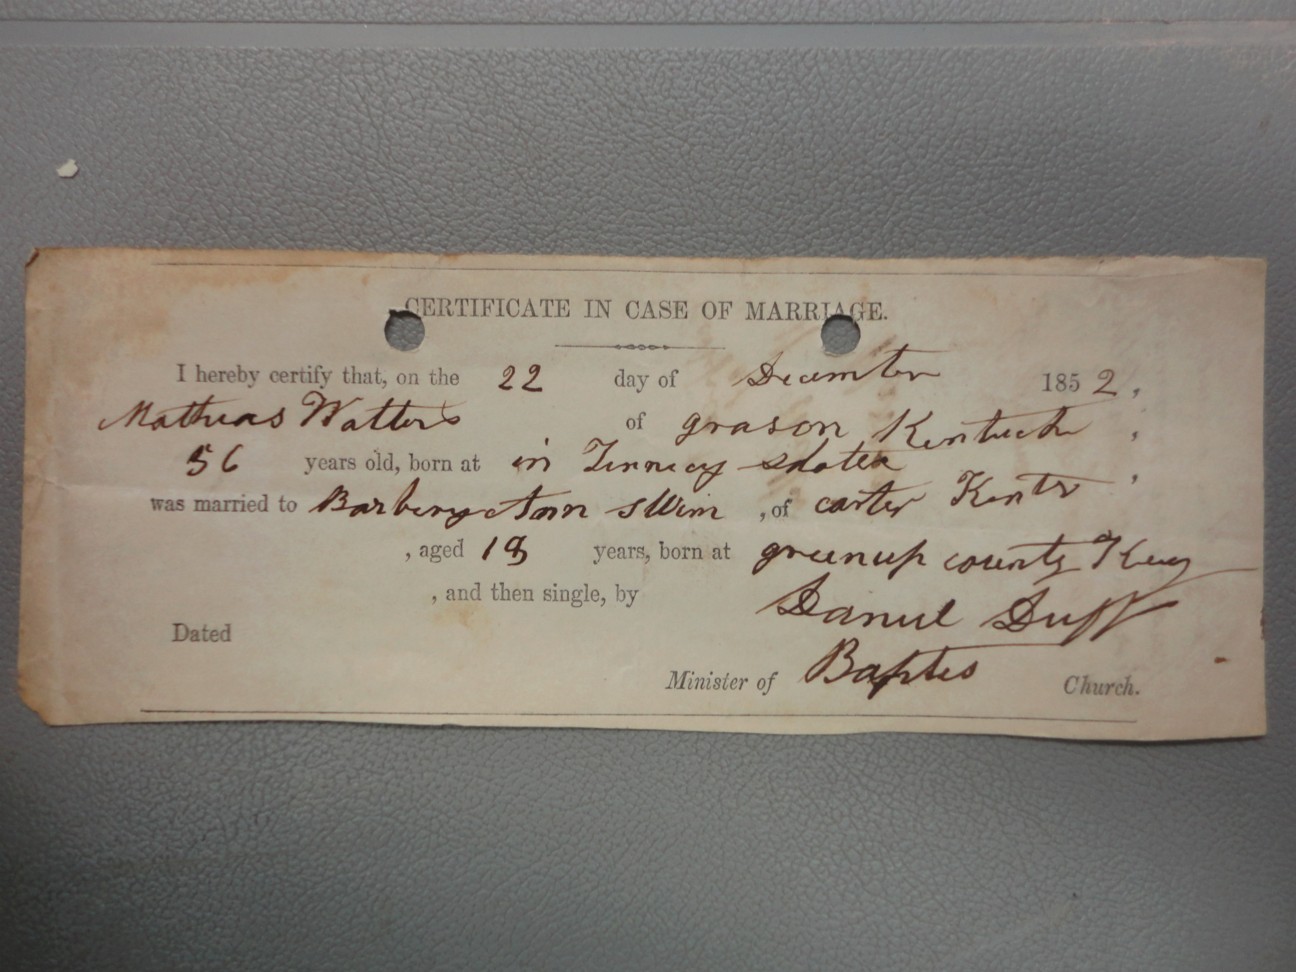 CERTIFICATE IN CASE OF MARRIAGE.
I hereby certify that, on the 22 day of December 1852,
Mathias Watters of grason Kentuck,
56 years old, born at in state,
was married to Ann sWim, of carter Kentr
, aged 18 years, born at greenup county Kuy
, and then single, by Daniel Duff
Dated
Minister of Baptes Church.